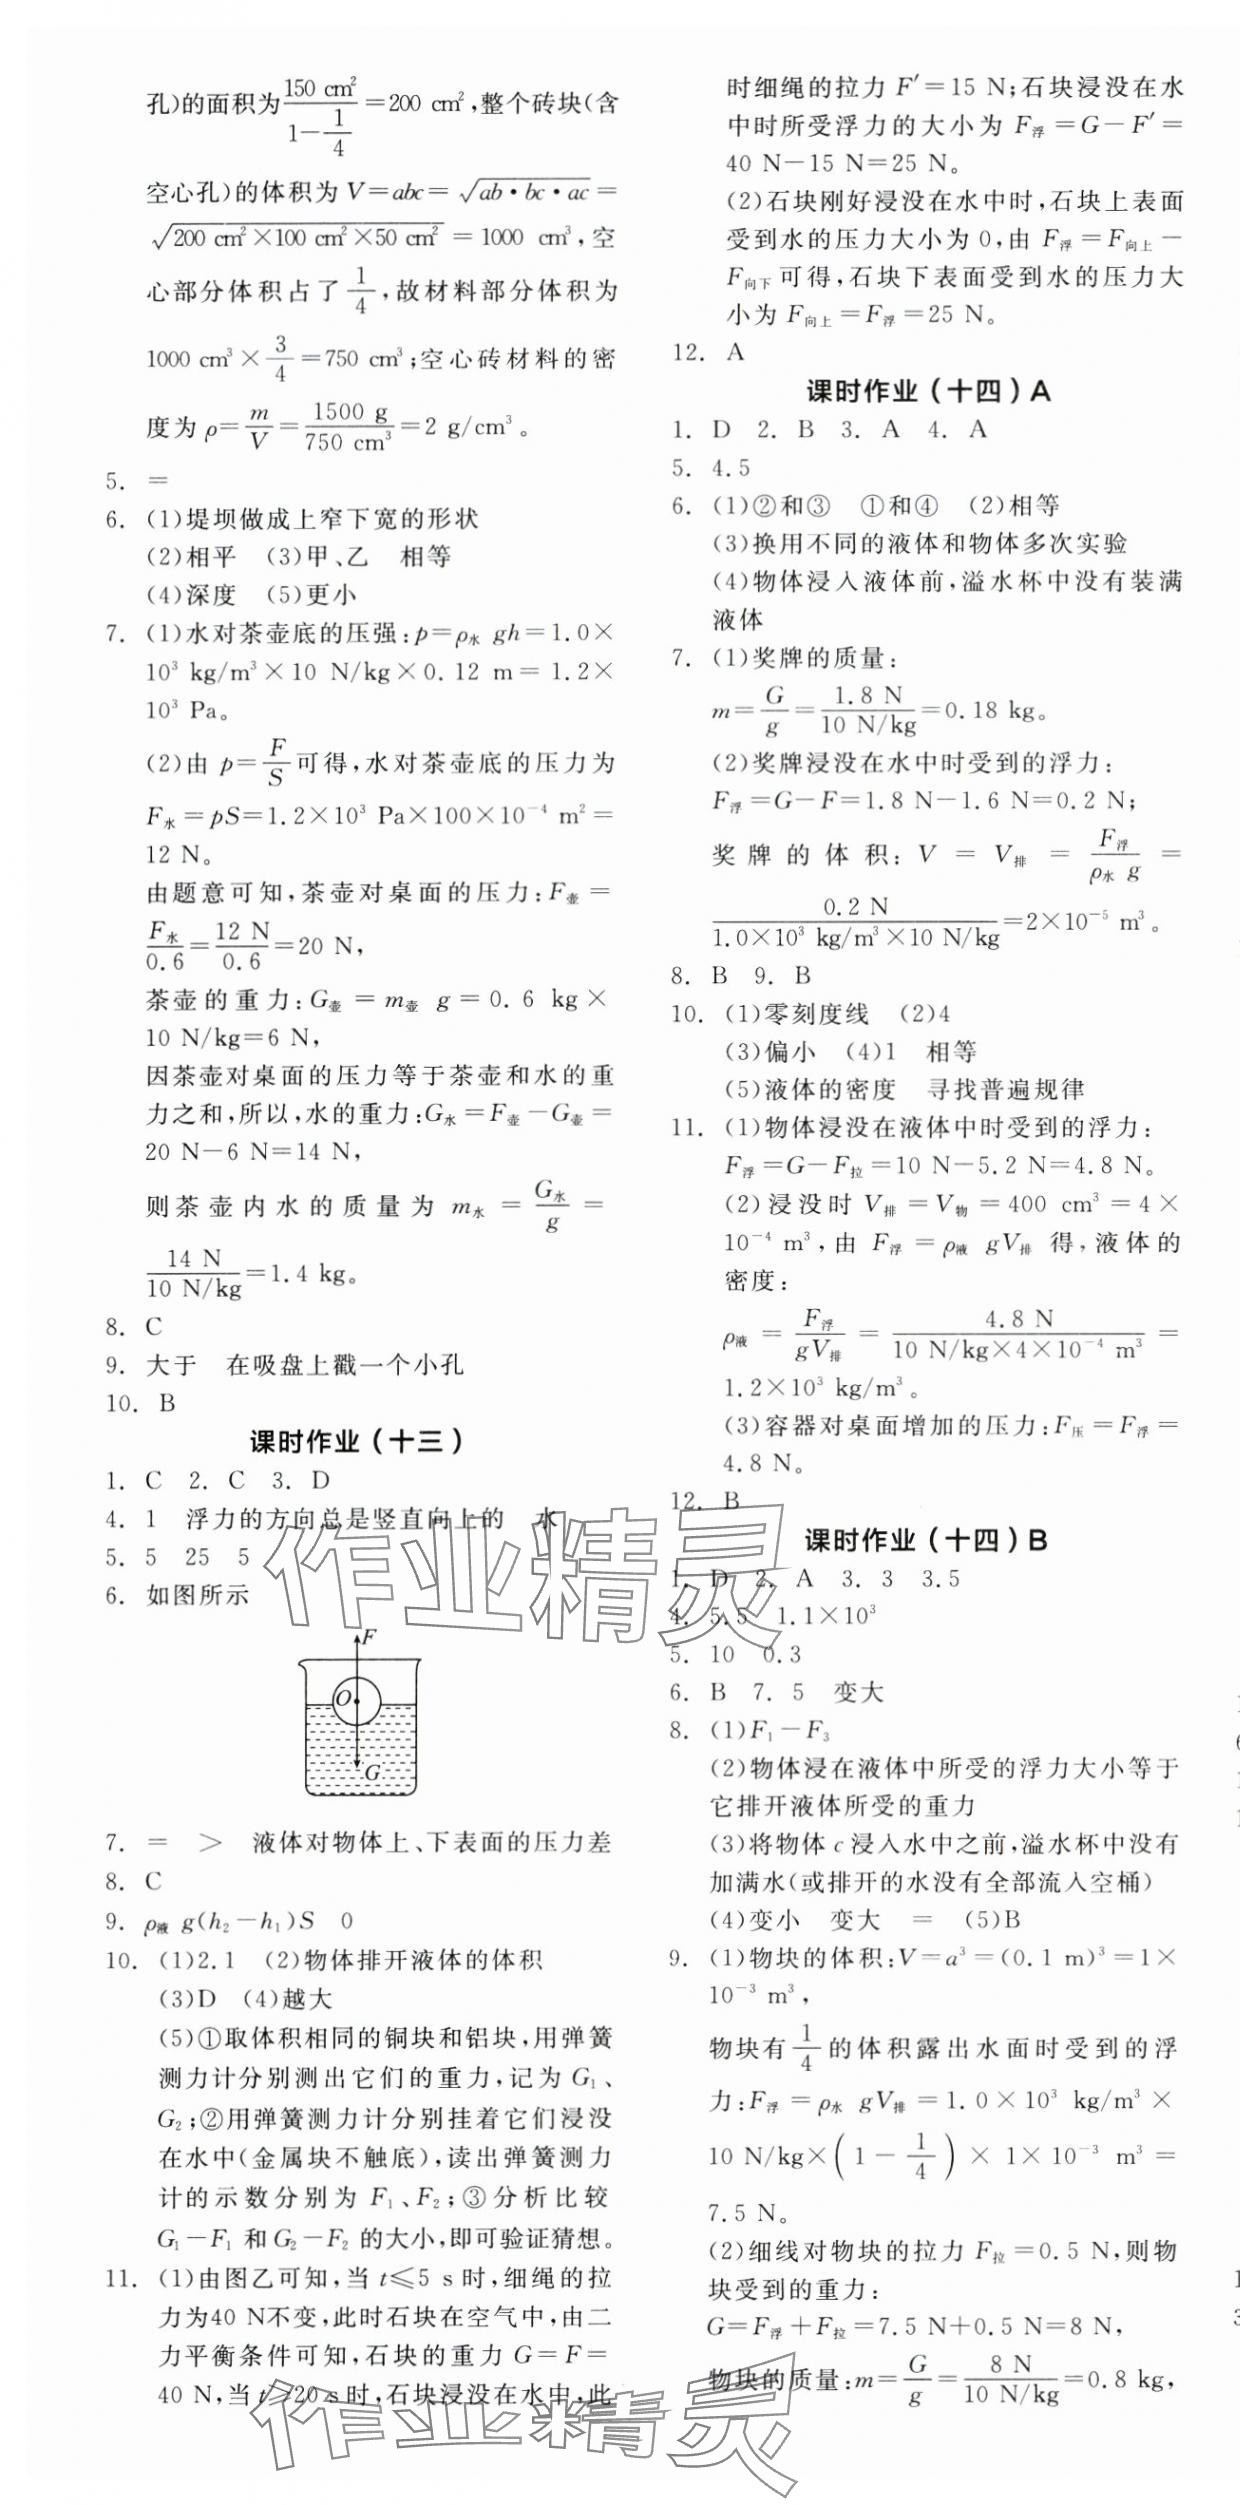 孔)的面积为150 cm²/(1-1/4)=200 cm²,整个砖块(含
空心孔)的体积为V=abc=√(ab·bc·ac)=
√(200 cm²×100 cm²×50 cm²)=1000 cm³,空
心部分体积占了1/4,故材料部分体积为
1000 cm³×3/4=750 cm³;空心砖材料的密
度为ρ=m/V=1500 g/750 cm³=2 g/cm³。
5. =
6. (1)堤坝做成上窄下宽的形状
(2)相平 (3)甲、乙 相等
(4)深度 (5)更小
7. (1)水对茶壶底的压强:p=ρ水 gh=1.0×
10³ kg/m³×10 N/kg×0.12 m=1.2×
10³ Pa。
(2)由 p=F/S可得,水对茶壶底的压力为
F水=pS=1.2×10³ Pa×100×10⁻⁴ m²=
12 N。
由题意可知,茶壶对桌面的压力:F壶=
F水/0.6=12 N/0.6=20 N,
茶壶的重力:G壶=m壶 g=0.6 kg×
10 N/kg=6 N,
因茶壶对桌面的压力等于茶壶和水的重
力之和,所以,水的重力:G水=F壶-G壶=
20 N-6 N=14 N,
则茶壶内水的质量为 m水=G水/g=
14 N/10 N/kg=1.4 kg。
8. C
9. 大于 在吸盘上戳一个小孔
10. B
课时作业(十三)
1. C 2. C 3. D
4. 1 浮力的方向总是竖直向上的 水
5. 5 25 5
6. 如图所示
F
O
G
7. = > 液体对物体上、下表面的压力差
8. C
9. ρ液 g(h₂-h₁)S 0
10. (1)2.1 (2)物体排开液体的体积
(3)D (4)越大
(5)①取体积相同的铜块和铝块,用弹簧
测力计分别测出它们的重力,记为 G₁、
G₂;②用弹簧测力计分别挂着它们浸没
在水中(金属块不触底),读出弹簧测力
计的示数分别为 F₁、F₂;③分析比较
G₁-F₁ 和 G₂-F₂ 的大小,即可验证猜想。
11. (1)由图乙可知,当 t≤5 s时,细绳的拉
力为40 N不变,此时石块在空气中,由二
力平衡条件可知,石块的重力 G=F=
40 N,当 t 20 s时,石块浸没在水中,此
时细绳的拉力 F′=15 N;石块浸没在水
中时所受浮力的大小为 F浮=G-F′=
40 N-15 N=25 N。
(2)石块刚好浸没在水中时,石块上表面
受到水的压力大小为0,由 F浮=F向上-
F向下可得,石块下表面受到水的压力大
小为 F向上=F浮=25 N。
12. A
课时作业(十四)A
1. D 2. B 3. A 4. A
5. 4.5
6. (1)②和③ ①和④ (2)相等
(3)换用不同的液体和物体多次实验
(4)物体浸入液体前,溢水杯中没有装满
液体
7. (1)奖牌的质量:
m=G/g=1.8 N/10 N/kg=0.18 kg。
(2)奖牌浸没在水中时受到的浮力:
F浮=G-F=1.8 N-1.6 N=0.2 N;
奖牌的体积: V=V排=F浮/ρ水 g=
0.2 N/1.0×10³ kg/m³×10 N/kg=2×10⁻⁵ m³。
8. B 9. B
10. (1)零刻度线 (2)4
(3)偏小 (4)1 相等
(5)液体的密度 寻找普遍规律
11. (1)物体浸没在液体中时受到的浮力:
F浮=G-F拉=10 N-5.2 N=4.8 N。
(2)浸没时 V排=V物=400 cm³=4×
10⁻⁴ m³,由 F浮=ρ液 gV排 得,液体的
密度:
ρ液=F浮/gV排=4.8 N/10 N/kg×4×10⁻⁴ m³=
1.2×10³ kg/m³。
(3)容器对桌面增加的压力:F压=F浮=
4.8 N。
12. B
课时作业(十四)B
1. D 2. A 3. 3 3.5
4. 5.5 1.1×10³
5. 10 0.3
6. B 7. 5 变大
8. (1)F₁-F₃
(2)物体浸在液体中所受的浮力大小等于
它排开液体所受的重力
(3)将物体 c 浸入水中之前,溢水杯中没有
加满水(或排开的水没有全部流入空桶)
(4)变小 变大 = (5)B
9. (1)物块的体积:V=a³=(0.1 m)³=1×
10⁻³ m³,
物块有1/4的体积露出水面时受到的浮
力:F浮=ρ水 gV排=1.0×10³ kg/m³×
10 N/kg×(1-1/4)×1×10⁻³ m³=
7.5 N。
(2)细线对物块的拉力 F拉=0.5 N,则物
块受到的重力:
G=F浮+F拉=7.5 N+0.5 N=8 N,
物块的质量:m=G/g=8 N/10 N/kg=0.8 kg,
作业精灵
作业精灵